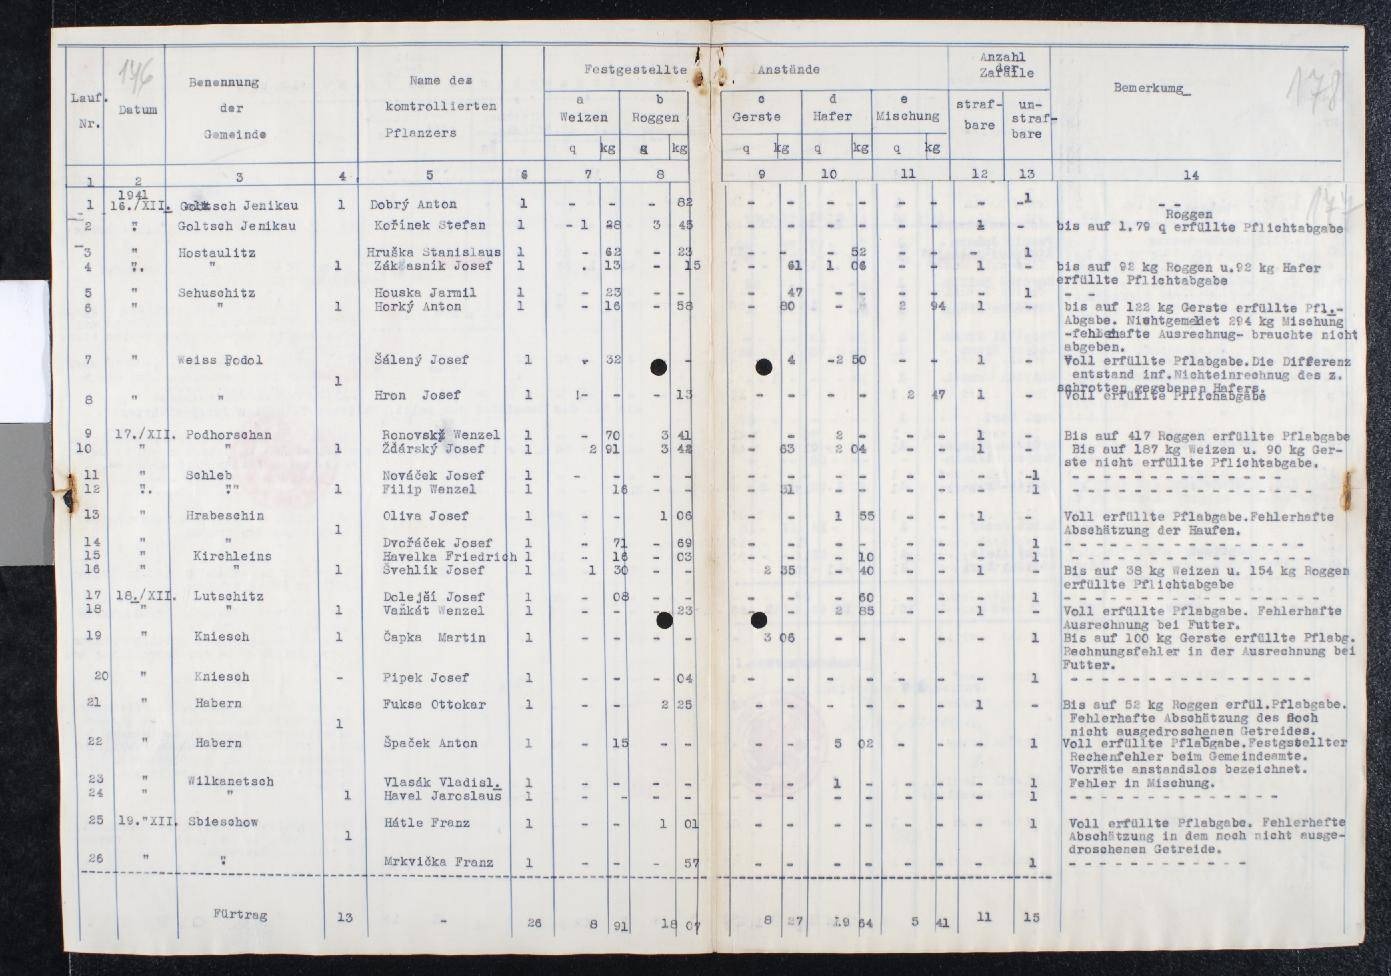 146
178
177
Lauf. Nr. | Datum | Benennung der Gemeinde | | Name des komtrollierten Pflanzers | | Festgestellte Anstände | Anzahl der Zafälle | Bemerkung
a Weizen | b Roggen | c Gerste | d Hafer | e Mischung | straf- bare | un- straf- bare
q kg | q kg | q kg | q kg | q kg
1 | 2 | 3 | 4 | 5 | 6 | 7 | 8 | 9 | 10 | 11 | 12 | 13 | 14
1941
1 | 16./XII. | Goltsch Jenikau | 1 | Dobrý Anton | 1 | - - | - 82 | - - | - - | - - | - | 1 | - -
Roggen
2 | " | Goltsch Jenikau | | Kořínek Stefan | 1 | - 1 28 | 3 45 | - - | - - | - - | 1 | - | bis auf 1.79 q erfüllte Pflichtabgabe
3 | " | Hostaulitz | | Hruška Stanislaus | 1 | - 62 | - 23 | - - | - 52 | - - | - | 1
4 | " | " | 1 | Zákasník Josef | 1 | . 13 | - 15 | - 61 | 1 06 | - - | 1 | - | bis auf 92 kg Roggen u.92 kg Hafer
erfüllte Pflichtabgabe
5 | " | Sehuschitz | | Houska Jarmil | 1 | - 23 | - - | - 47 | - - | - - | - | 1 | - -
6 | " | " | 1 | Horký Anton | 1 | - 16 | - 58 | - 80 | - - | 2 94 | 1 | - | bis auf 122 kg Gerste erfüllte Pfl.-
Abgabe. Nichtgemeldet 294 kg Mischung
-fehlehafte Ausrechnug- brauchte nicht
abgeben.
7 | " | Weiss Podol | | Šálený Josef | 1 | - 32 | - | 4 | -2 50 | - - | 1 | - | Voll erfüllte Pflabgabe.Die Differenz
entstand inf.Nichteinrechnug des z.
1
schrotten gegebenen Hafers.
8 | " | " | | Hron Josef | 1 | - - | - 13 | - - | - - | 2 47 | 1 | - | Voll erfüllte Pflichabgabe
9 | 17./XII. | Podhorschan | | Ronovský Wenzel | 1 | - 70 | 3 41 | - - | 2 - | - - | 1 | - | Bis auf 417 Roggen erfüllte Pflabgabe
10 | " | " | 1 | Žďárský Josef | 1 | 2 91 | 3 42 | - 63 | 2 04 | - - | 1 | - | Bis auf 187 kg Weizen u. 90 kg Ger-
ste nicht erfüllte Pflichtabgabe.
11 | " | Schleb | | Nováček Josef | 1 | - - | - - | - - | - - | - - | - | -1 | - - - - - - - - - - - - -
12 | " | " | 1 | Filip Wenzel | 1 | 16 | - - | 31 | - - | - - | - | 1 | - - - - - - - - - - - - -
13 | " | Hrabeschin | | Oliva Josef | 1 | - - | 1 06 | - - | 1 55 | - - | 1 | - | Voll erfüllte Pflabgabe.Fehlerhafte
1
Abschätzung der Haufen.
14 | " | " | | Dvořáček Josef | 1 | - 71 | - 69 | - - | - - | - - | - | 1 | - - - - - - - - - - - - -
15 | " | Kirchleins | | Havelka Friedrich | 1 | - 16 | - 03 | - - | - 10 | - - | - | 1 | - - - - - - - - - - - - -
16 | " | " | 1 | Švehlík Josef | 1 | 1 30 | - - | 2 35 | - 40 | - - | 1 | - | Bis auf 38 kg Weizen u. 154 kg Roggen
erfüllte Pflichtabgabe
17 | 18./XII. | Lutschitz | | Dolejší Josef | 1 | - 08 | - - | - - | - 60 | - - | - | 1 | - - - - - - - - - - - - -
18 | " | " | 1 | Vaňkát Wenzel | 1 | - - | - 23 | - - | 2 85 | - - | 1 | - | Voll erfüllte Pflabgabe. Fehlerhafte
Ausrechnung bei Futter.
19 | " | Kniesch | 1 | Čapka Martin | 1 | - - | - - | 3 06 | - - | - - | - | 1 | Bis auf 100 kg Gerste erfüllte Pflabg.
Rechnungsfehler in der Ausrechnung bei
Futter.
20 | " | Kniesch | - | Pipek Josef | 1 | - - | - 04 | - - | - - | - - | - | 1 | - - - - - - - - - - - - -
21 | " | Habern | | Fuksa Ottokar | 1 | - - | 2 25 | - - | - - | - - | 1 | - | Bis auf 52 kg Roggen erfül.Pflabgabe.
Fehlerhafte Abschätzung des noch
1
nicht ausgedroschenen Getreides.
22 | " | Habern | | Špaček Anton | 1 | - 15 | - - | - - | 5 02 | - - | - | 1 | Voll erfüllte Pflabgabe.Festgstellter
Rechenfehler beim Gemeindeamte.
Vorräte anstandslos bezeichnet.
23 | " | Wilkanetsch | | Vlasák Vladisl. | 1 | - - | - - | - - | 1 - | - - | - | 1 | Fehler in Mischung.
24 | " | " | 1 | Havel Jaroslaus | 1 | - - | - - | - - | - - | - - | - | 1 | - - - - - - - - - - - - -
25 | 19."XII. | Sbieschow | | Hátle Franz | 1 | - - | 1 01 | - - | - - | - - | - | 1 | Voll erfüllte Pflabgabe. Fehlerhafte
1
Abschätzung in dem noch nicht ausge-
droschenen Getreide.
26 | " | " | | Mrkvička Franz | 1 | - - | - 57 | - - | - - | - - | - | 1 | - - - - - - - - - - - -
Fürtrag | 13 | - | 26 | 8 91 | 18 07 | 8 27 | 19 64 | 5 41 | 11 | 15